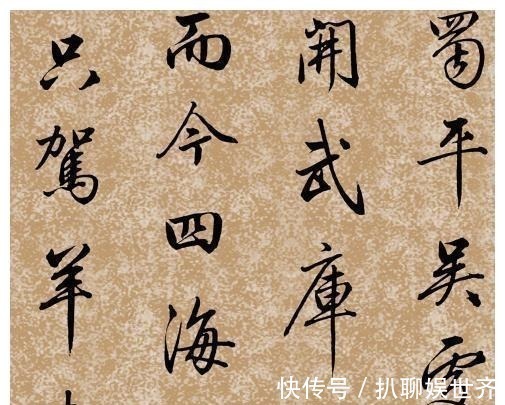 蜀平吴
開武庫
而今四海
只駕羊
快传号 / 扒聊娱世齐